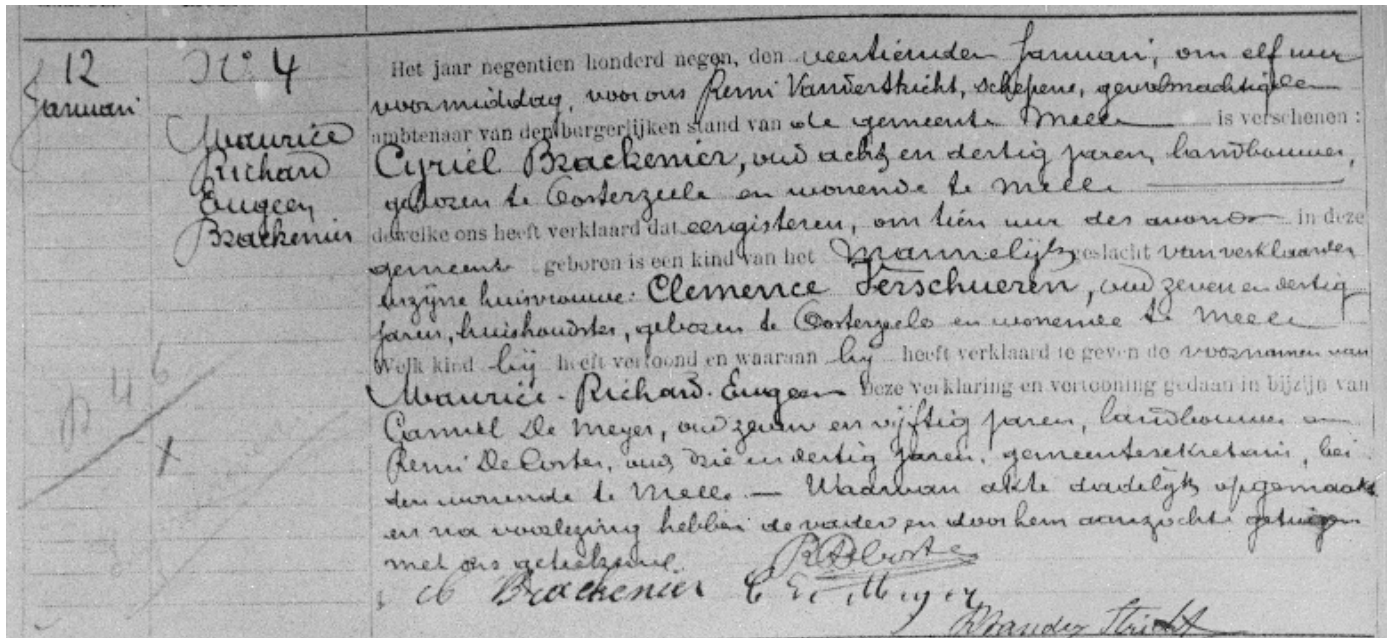 12
Januari
N° 4
Maurice
Richard
Eugeen
Brackenier
Het jaar negentien honderd negen, den veertienden Januari, om elf uur
voormiddag, voor ons Remi Vanderstricht, schepene, gevolmachtigde
ambtenaar van den burgerlijken stand van de gemeente Melle is verschenen :
Cyriel Brackenier, oud acht en dertig jaren, landbouwer,
geboren te Oosterzeele en wonende te Melle
dewelke ons heeft verklaard dat eergisteren, om tien uur des avonds in deze
gemeente geboren is een kind van het Mannelijk geslacht van verklaarder
en zijne huisvrouwe: Clemence Verschueren, oud zeven en dertig
jaren, huishoudster, geboren te Oosterzeele en wonende te Melle
Welk kind hij heeft vertoond en waaraan hij heeft verklaard te geven de voornamen van
Maurice - Richard - Eugeen Deze verklaring en vertooning gedaan in bijzijn van
Camiel De Meyer, oud zeven en vijftig jaren, landbouwer en
Remi De Coster, oud drie en dertig jaren, gemeentesekretaris, bei
den wonende te Melle. — Waarvan akte dadelijk opgemaakt
en na voorlezing hebben de vader en door hem aanzochte getuigen
met ons geteekend.
R De Coster
C Brackenier C De Meyer
R Vander Stricht